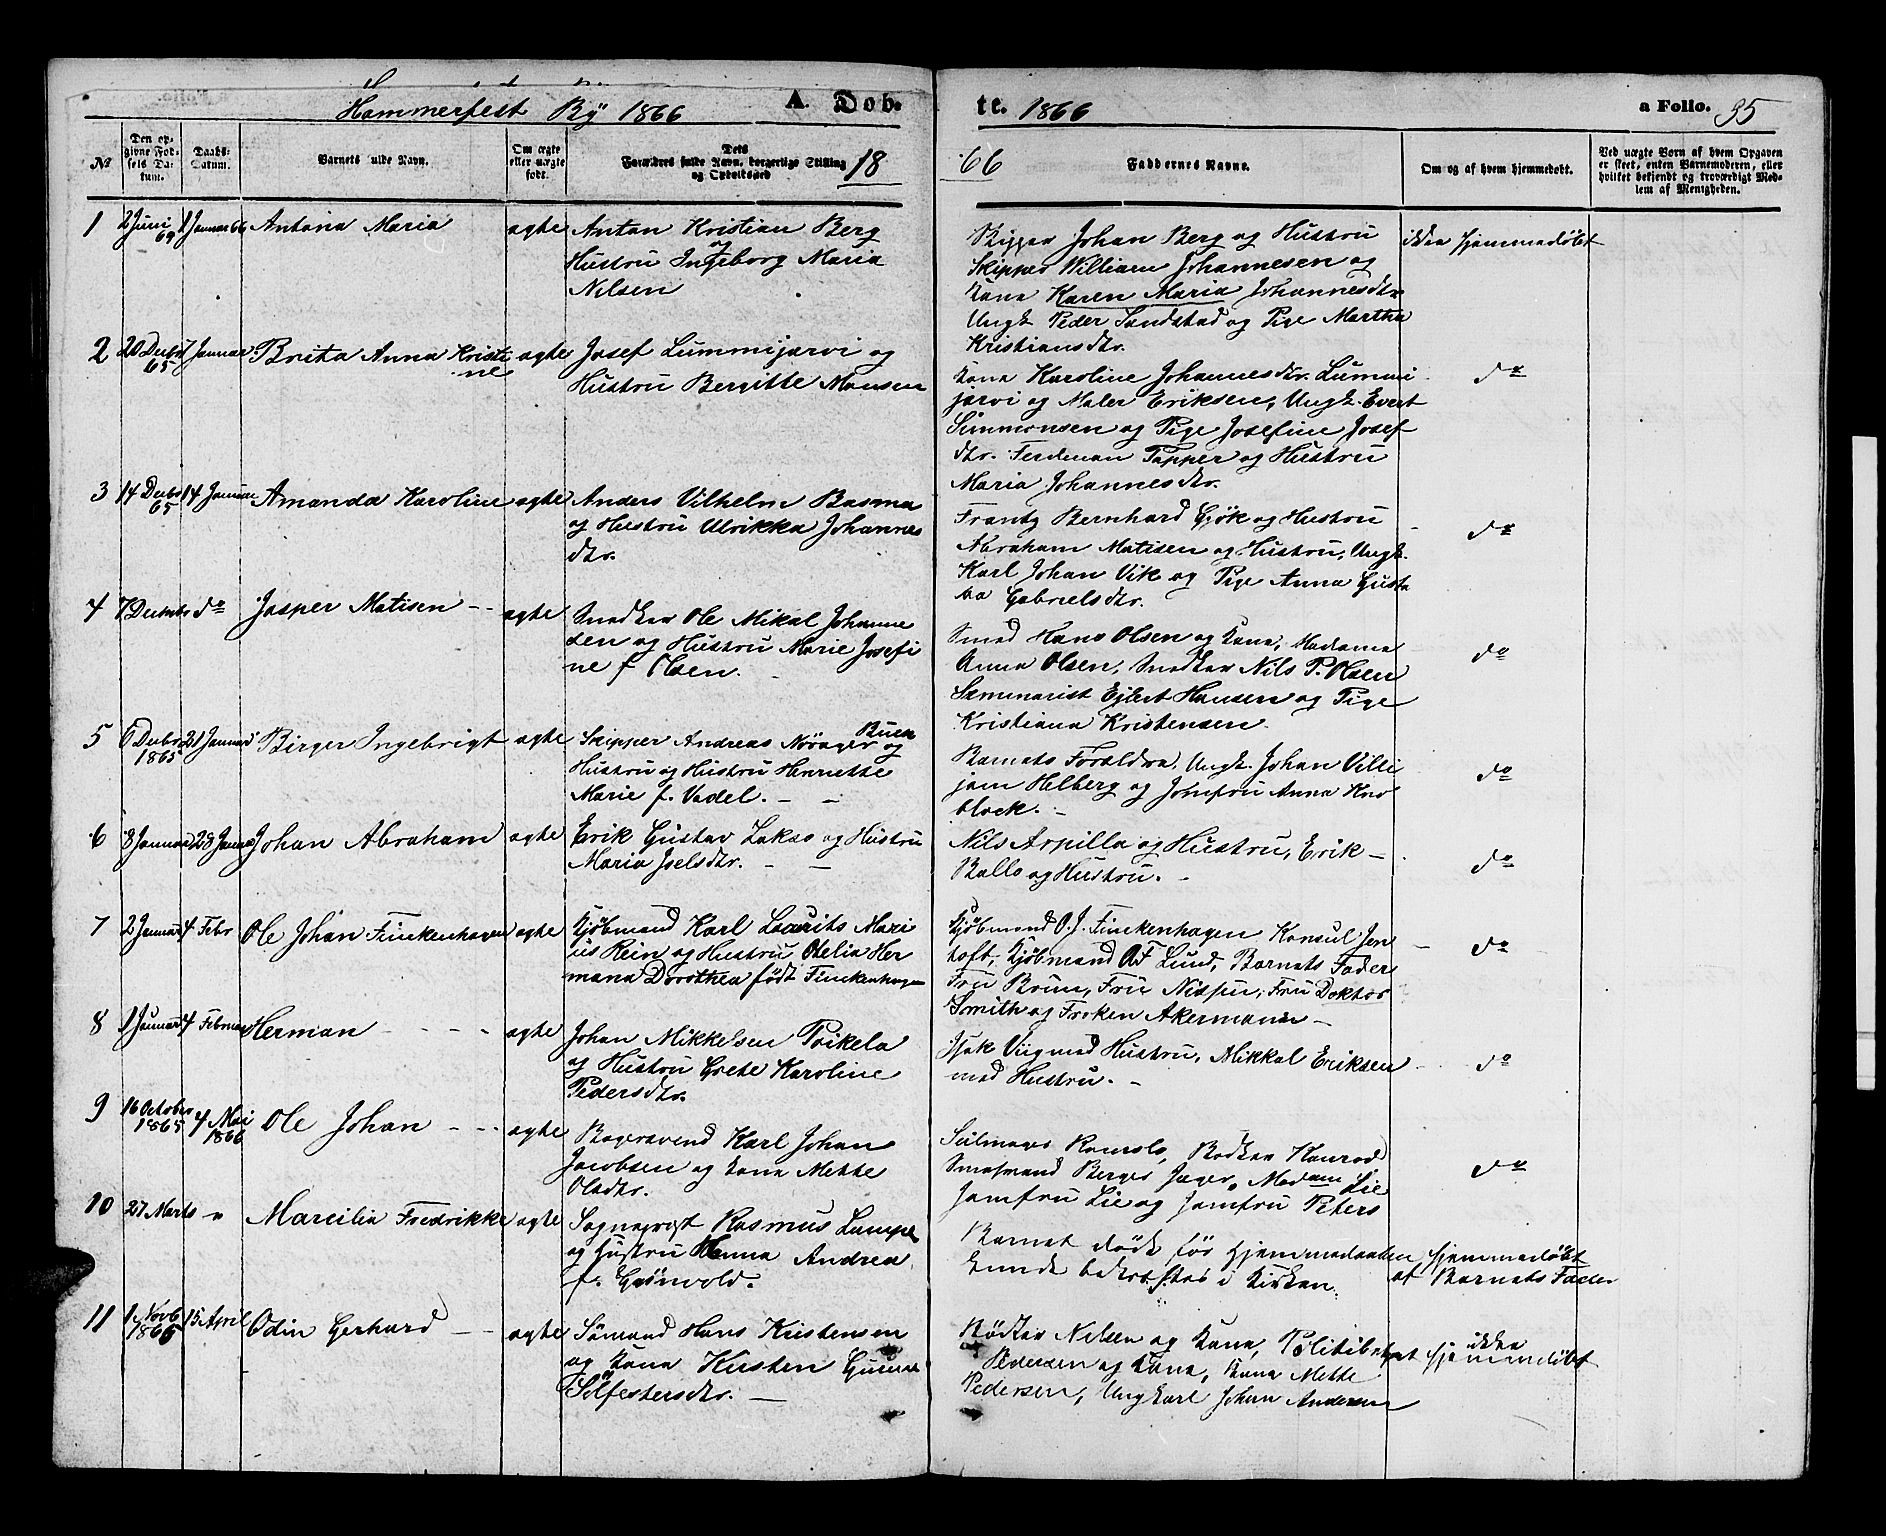 Hammerfest By 1866 A. Døb- te. 1866 a Folio. 35
№ Den opgivne Fødsels Datum. Daabs-Datum. Barnets fulde Navn. Om ægte eller uægte født. Dets Forældres fulde Navn, borgerlige Stilling og Opholdssted 18 66 Faddernes Navne. Om og af hvem hjemmedøbt. Ved uægte Børn af hvem Opgaven er skeet, enten Barnemoderen, eller hvilket bekjendt og troværdigt Medlem af Menigheden.
1 2 Juni 1 Januar 66 Antona Maria ægte Anton Kristian Berg
og
Hustru Ingeborg Maria
Nilsen
Skipper Johan Berg og Hustru ikke hjemmedøbt
Skipper William Johannesen og
Kona Karen Maria Johannesdtr
Ungk Peder Sandstad og Pige Martha
Kristiansdtr.
2 20 Decbr 65 7 Januar Brita Anna Kristine ægte Josef Lummijarvi og
Hustru Bergitte Monsen
Kona Karoline Johannesdtr. Lummi
jarvi og Maler Eriksen, Ungk. Evert do
Simmonsen og Pige Josefine Josef
dtr. Ferdinan Tapper og Hustru
Maria Johannesdtr.
3 14 Decbr 65 14 Januar Amanda Karoline ægte Anders Vilhelm Basma
og Hustru Ulrikka Johannes
dtr.
Frantz Bernhard Gjøk og Hustru
Abraham Matisen og Hustru, Ungk. do
Karl Johan Vik og Pige Anna Gusta
va Gabrielsdtr.
4 7 Decmbr do Jasper Matisen ægte Snedker Ole Mikal Johanne
sen og Hustru Marie Josefi
ne f Olsen.
Smed Hans Olsen og Kone, Madame
Anna Olsen, Snedker Nils P. Olsen do
Seminarist Ejlert Hansen og Pige
Kristiana Kristensen.
5 6 Decbr 1865 21 Januar Birger Ingebrigt ægte Skipper Andreas Norager Buck og
Hustru og Hustru Henriette
Marie f. Vadel.
Barnets Forældre, Ungk. Johan Villi
jam Helberg og Jomfru Anna Kno do
block.
6 8 Januar 28 Janua Johan Abraham ægte Erik Gustav Lakso og Hustru
Maria Iselsdtr.
Nils Arpilla og Hustru, Erik
Ballo og Hustru. do
7 2 Januar 4 Febr Ole Johan Finckenhagen ægte Kjøbmand Karl Laurits Mari
us Rein og Hustru Otelia Her
mana Dorothea født Finckenhagen
Kjøbmand O.J. Finckenhagen Konsul Jen
toft, Kjøbmand OF Lund, Barnets Fader do
Fru Bruun, Fru Nissen, Fru Doktor
Smith og Frøken Akermann
8 1 Januar 4 Februar Herman ægte Johan Mikkelsen Poikela
og Hustru Grete Karoline
Pedersdtr.
Isak Viig med Hustru, Mikkal Eriksen
med Hustru. do
9 16 October 1865 4 Mai 1866 Ole Johan ægte Bagersvend Karl Johan
Jacobsen og Kona Mette
Olsdtr.
Seilmager Ramslo, Bødker Konrad
Berger Jæger, Madam Lie do
Jomfru Lie og Jomfru Peters
10 27 Marts " Marcilia Fredrikke ægte Sogneprest Rasmus Lampe
og Hustru Hanna Andrea
f. Grønvold.
Barnet døde før Hjemmedaaben Hjemmedøbt
kunde bekræftes i Kirken. af Barnets Fader
11 1 Novb 1865 15 April Odin Gerhard ægte Sømand Hans Kristensen
og Kona Kirsten Gunna
Silfestersdtr.
Bødker Nilsen og Kona, Politibetjent ikke hjemmedøbt
Pedersen og Kona, Kona Mette
Pedersen, Ungkarl Johan Andersen